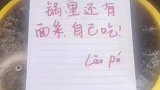 锅里还有
面条自己吃!
Lǎo pó